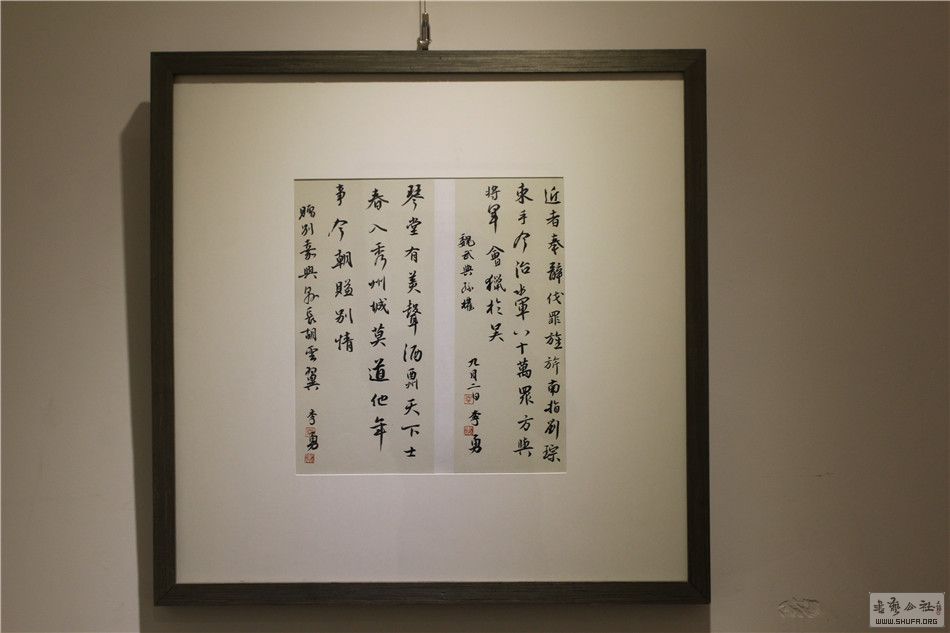 近者奉辭伐罪旌旂南指劉琮
束手今治水軍八十萬眾方與
將軍會獵於吳
魏武與孫權
九月二日 李勇
琴堂有美聲酒天下士
春入秀州城莫道他年
事今朝別情
贈别嘉興縣長胡雲翼 李勇
WWW.SHUFA.ORG